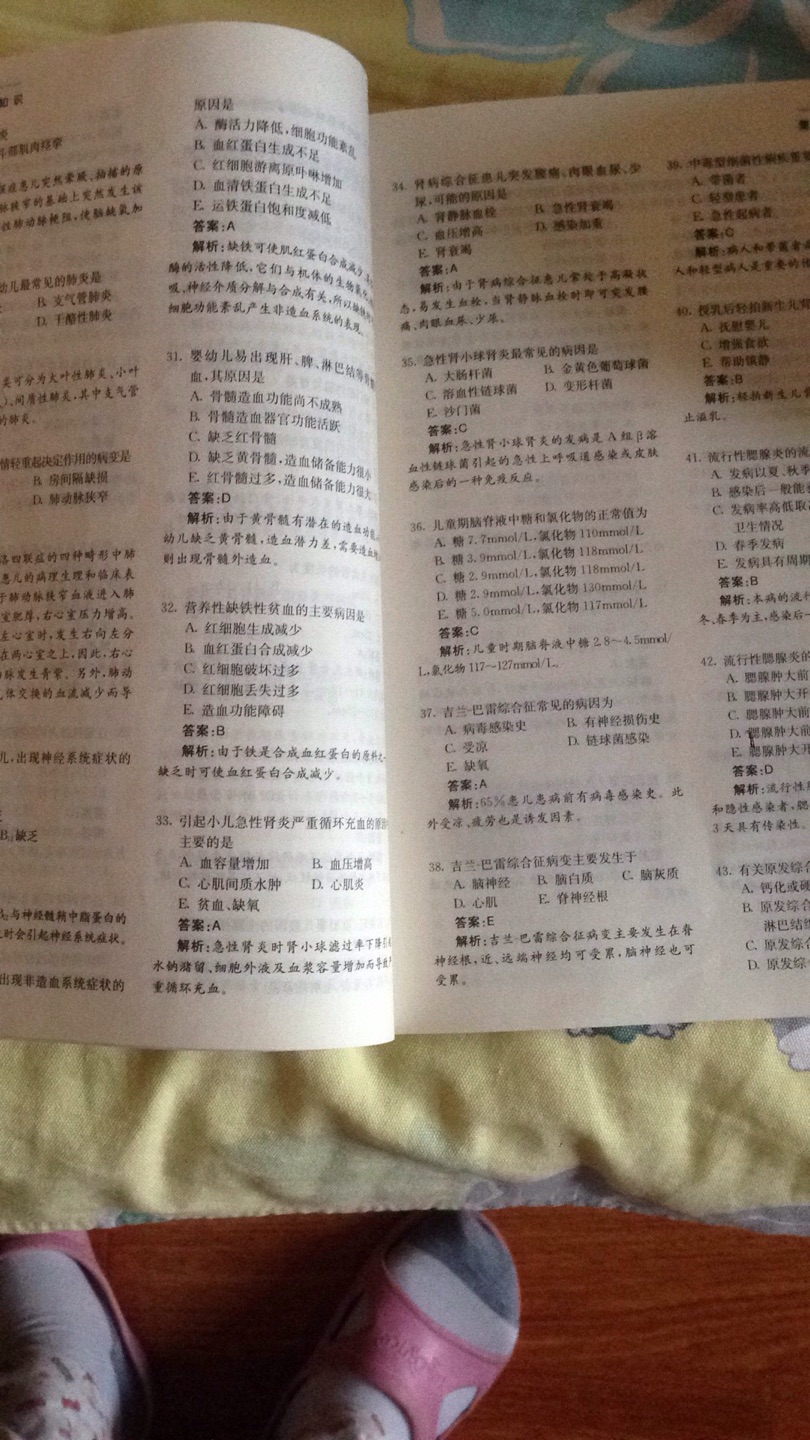 知识
炎
年都肌肉痉挛
脉狭窄的基础上突然发生该
性肺动脉梗阻,使脑缺氧加
幼儿最常见的肺炎是
B. 支气管肺炎
D. 干酪性肺炎
炎可分为大叶性肺炎、小叶
)、间质性肺炎,其中支气管
的肺炎。
情轻重起决定作用的病变是
B. 房间隔缺损
D. 肺动脉狭窄
洛四联症的四种畸形中肺
患儿的病理生理和临床表
于肺动脉狭窄血液进入肺
室肥厚,右心室压力增高。
左心室时,发生右向左分
在两心室之上,因此,右心
动脉发生青紫。另外,肺动
气体交换的血流减少而导
儿,出现神经系统症状的
缺乏
与神经髓鞘中脂蛋白的
乏时会引起神经系统症状。
出现非造血系统症状的
原因是
A. 酶活力降低,细胞功能紊乱
B. 血红蛋白生成不足
C. 红细胞游离原卟啉增加
D. 血清铁蛋白生成不足
E. 运铁蛋白饱和度减低
答案:A
解析:缺铁可使肌红蛋白合成减少
酶的活性降低,它们与机体的生物氧化
吸,神经介质分解与合成有关,所以
细胞功能紊乱产生非造血系统的表现。
31. 婴幼儿易出现肝、脾、淋巴结等
血,其原因是
A. 骨髓造血功能尚不成熟
B. 骨髓造血器官功能活跃
C. 缺乏红骨髓
D. 缺乏黄骨髓,造血储备能力很小
E. 红骨髓过多,造血储备能力很大
答案:D
解析:由于黄骨髓有潜在的造血功能,
幼儿缺乏黄骨髓,造血潜力差,需要造血
则出现骨髓外造血。
32. 营养性缺铁性贫血的主要病因是
A. 红细胞生成减少
B. 血红蛋白合成减少
C. 红细胞破坏过多
D. 红细胞丢失过多
E. 造血功能障碍
答案:B
解析:由于铁是合成血红蛋白的原料之一
缺乏时可使血红蛋白合成减少。
33. 引起小儿急性肾炎严重循环充血的原因
主要的是
A. 血容量增加 B. 血压增高
C. 心肌间质水肿 D. 心肌炎
E. 贫血、缺氧
答案:A
解析:急性肾炎时肾小球滤过率下降
水钠潴留、细胞外液及血浆容量增加而导致
重循环充血。
34. 肾病综合征患儿突发腰痛、肉眼血尿、少
尿,可能的原因是
A. 肾静脉血栓 B. 急性肾衰竭
C. 血压增高 D. 感染加重
E. 肾衰竭
答案:A
解析:由于肾病综合征患儿常处于高凝状
态,易发生血栓,当肾静脉血栓时即可突发腰
痛、肉眼血尿、少尿。
35. 急性肾小球肾炎最常见的病因是
A. 大肠杆菌 B. 金黄色葡萄球菌
C. 溶血性链球菌 D. 变形杆菌
E. 沙门菌
答案:C
解析:急性肾小球肾炎的发病是A组β溶
血性链球菌引起的急性上呼吸道感染或皮肤
感染后的一种免疫反应。
36. 儿童期脑脊液中糖和氯化物的正常值为
A. 糖 7.7mmol/L,氯化物 110mmol/L
B. 糖 3.9mmol/L,氯化物 118mmol/L
C. 糖 2.9mmol/L,氯化物 118mmol/L
D. 糖 2.9mmol/L,氯化物 130mmol/L
E. 糖 5.0mmol/L,氯化物 117mmol/L
答案:C
解析:儿童时期脑脊液中糖 2.8~4.5mmol/
L,氯化物 117~127mmol/L。
37. 吉兰-巴雷综合征常见的病因为
A. 病毒感染史 B. 有神经损伤史
C. 受凉 D. 链球菌感染
E. 缺氧
答案:A
解析:65%患儿患病前有病毒感染史。此
外受凉、疲劳也是诱发因素。
38. 吉兰-巴雷综合征病变主要发生于
A. 脑神经 B. 脑白质 C. 脑灰质
D. 心肌 E. 脊神经根
答案:E
解析:吉兰-巴雷综合征病变主要发生在脊
神经根,近、远端神经均可受累,脑神经也可
受累。
39. 中毒型细菌性痢疾重要
A. 带菌者
C. 轻型患者
E. 急性起病者
答案:C
解析:病人和带菌者
人和轻型病人是重要的传
40. 授乳后轻拍新生儿背
A. 抚慰婴儿
C. 增强食欲
E. 帮助镇静
答案:B
解析:轻拍新生儿背
止溢乳。
41. 流行性腮腺炎的流
A. 发病以夏、秋季
B. 感染后一般能
C. 发病率高低取
卫生情况
D. 春季发病
E. 发病具有周期
答案:B
解析:本病的流行
冬、春季为主,感染后一
42. 流行性腮腺炎的
A. 腮腺肿大前
B. 腮腺肿大开
C. 腮腺肿大前
D. 腮腺肿大前
E. 腮腺肿大开
答案:D
解析:流行性
和隐性感染者,腮
3天具有传染性。
43. 有关原发综合
A. 钙化或硬
B. 原发综合
淋巴结
C. 原发综
D. 原发综